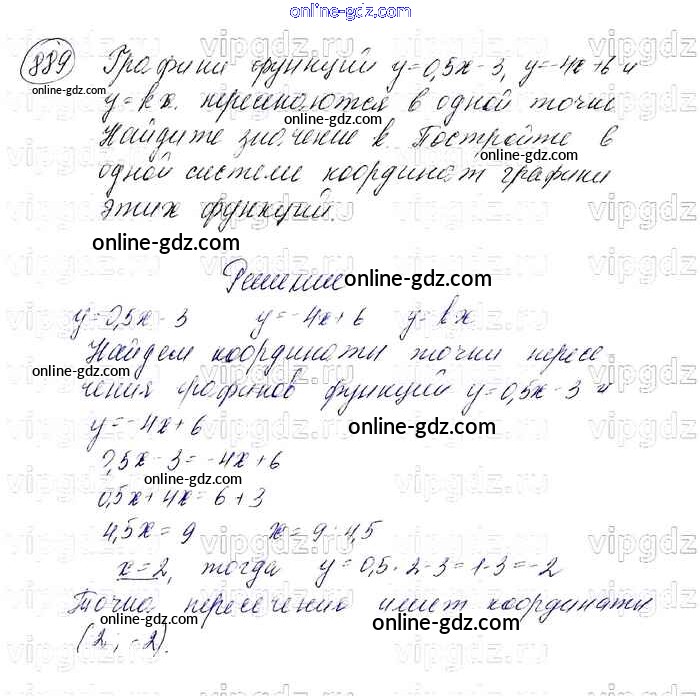 online-gdz.com
889 Графики функций y=0,5x-3, y=-4x+6 и
online-gdz.com
y=kx. пересекаются в одной точке
online-gdz.com
Найдите значение k. Постройте в
online-gdz.com
одной системе координат графики
этих функций.
online-gdz.com
Решение
online-gdz.com
y=0,5x-3 y=-4x+6 y=kx
Найдем координаты точки пересе
online-gdz.com
чения графиков функций y=0,5x-3 и
y=-4x+6
online-gdz.com
0,5x-3=-4x+6
online-gdz.com
0,5x+4x=6+3
4,5x=9 x=9:4,5
online-gdz.com
x=2, тогда y=0,5·2-3=1-3=-2
online-gdz.com
Точка пересечения имеет координаты
online-gdz.com
(2; -2).
vipgdz